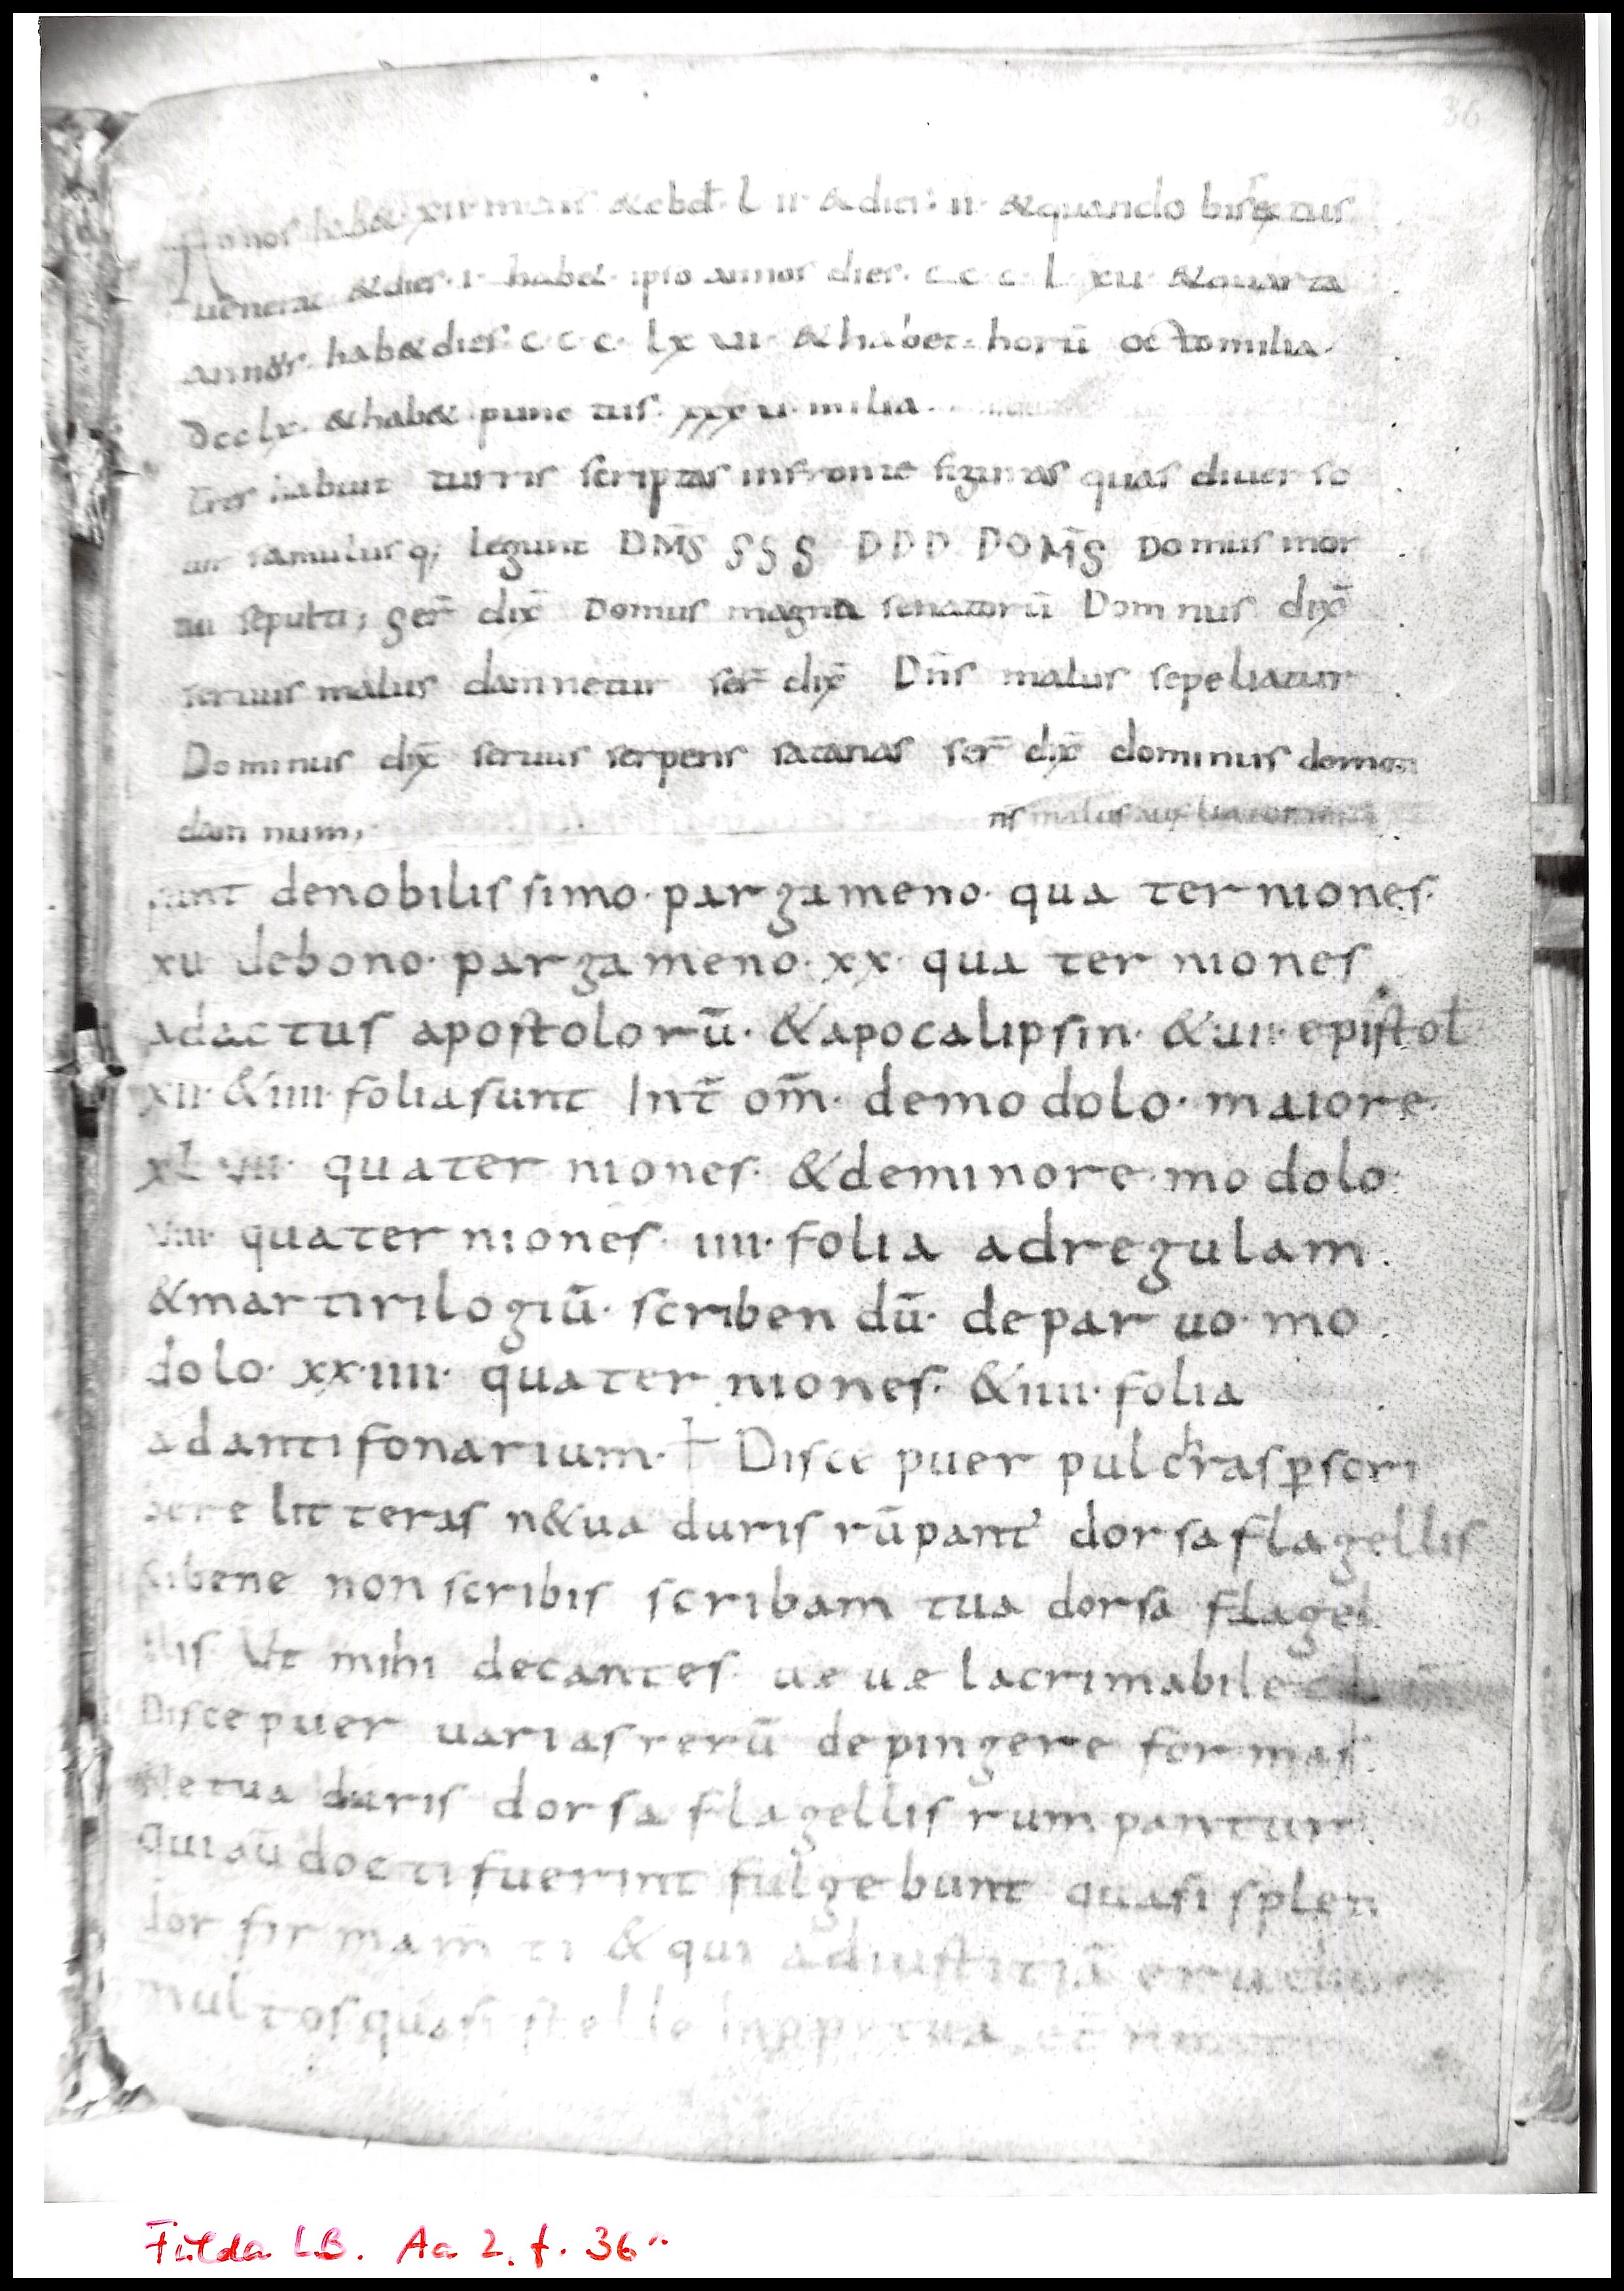 36
Annos hab& xii mensis &ebd̄ · l ii · &dies · ii · &quando bisextus
uenerit &dies · i · hab& · ipso annos dies · c c c · l · xu · &quarta
annor̄ · hab&dies · c · c · c · lx ui · &habet · horū octomilia ·
Dcclx · &hab& punctus · xxxu · milia ·
Tres habuit turris scriptas infronte figuras quas diuerse
famulusq; legunt DM̄S SSS DDD DOM̄S Domus mor
tui sepulti; ser̄ dix̄ Domus magna senatorū Dominus dix̄
seruus malus damnetur ser̄ dix̄ Dn̄s malus sepeliatur
Dominus dix̄ seruus serpens satanas ser̄ dix̄ dominus domon
dam num;
nis malus
sunt denobilissimo · pargameno · qua ter niones ·
xu debono · pargameno · xx · qua ter niones
adactus apostolorū · &apocalipsin · &uii · epistol
xii · &iiii · foliasunt Int̄ om̄ · demo dolo · maiore ·
xl uii · quater niones · &deminore · mo dolo ·
uiii · quater niones · iiii · folia adregulam ·
&martirilogiū · scriben dū · depar uo · mo
dolo · xx · iiii · quater niones · &iiii · folia
adantifonarium · † Disce puer pulchras p̱scri
bere litteras n&ua duris rūpant᷑ dorsa flagellis
Sibene non scribis scribam tua dorsa flagel
llis Ut mihi decantes · uae uae lacrimabile
Disce puer uarias rerū depingere formas ·
Ne tua duris dorsa flagellis rumpantur ·
Qui aū docti fuerint fulgebunt quasi splen
dor firmam̄ ti & qui adiustitiā erudiunt
multos quasi stelle inppetua
Fulda LB. Aa 2, f. 36ʳ